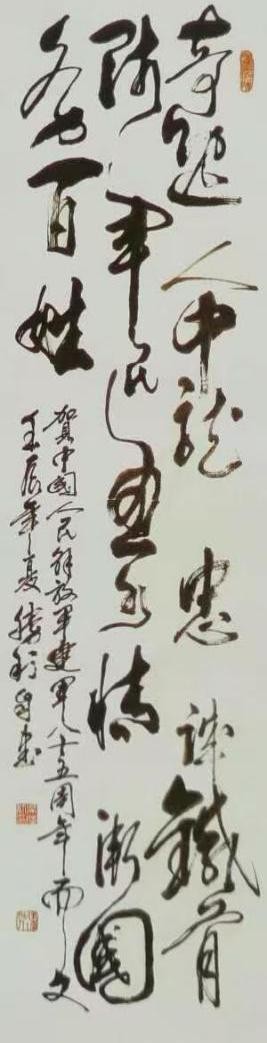 奇人中龍忠诚鐵骨
隊軍民魚水情衛國
百姓
賀中國人民解放軍建軍八十五周年而文
壬辰年夏